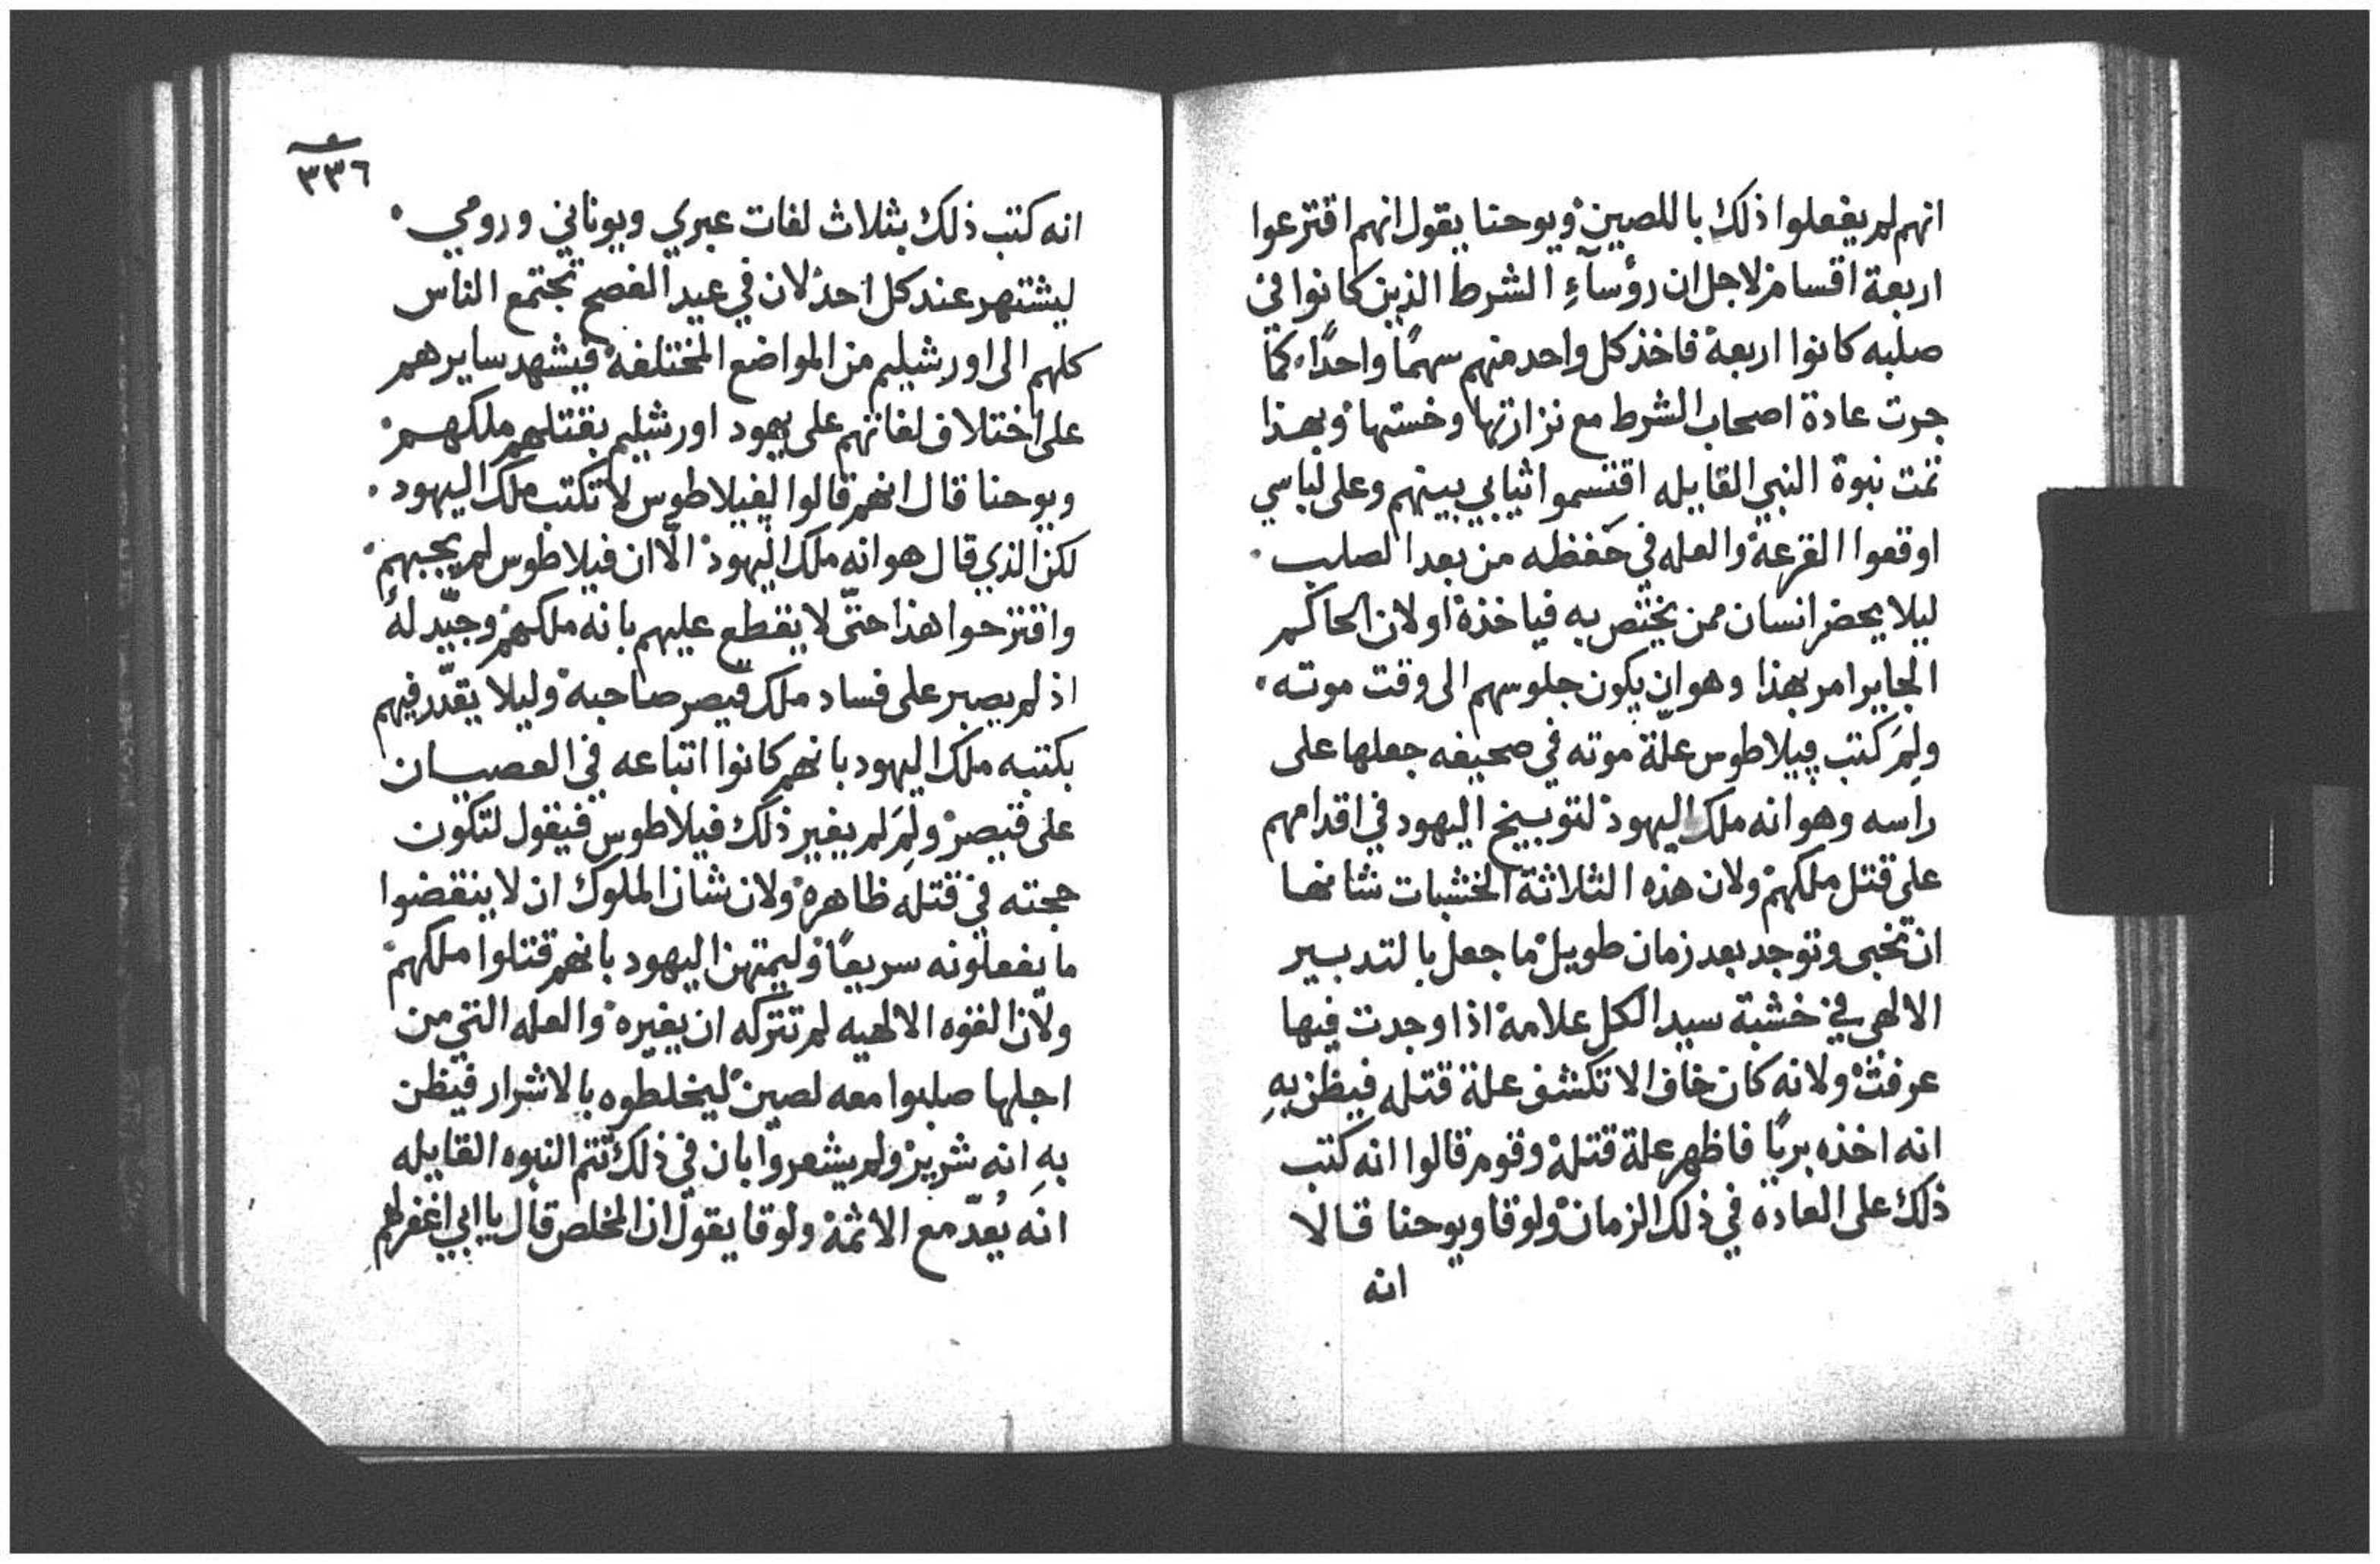 انهم لم يفعلوا ذلك باللصين ويوحنا يقول انهم اقترعوا
اربعة اقسام لاجل ان رؤسآء الشرط الذين كانوا في
صلبه كانوا اربعة فاخذ كل واحد منهم سهمًا واحدًا كما
جرت عادة اصحاب الشرط مع نزارتها وخستها وبهذا
تمت نبوة النبي القايله اقتسموا ثيابي بينهم وعلى لباسي
اوقعوا القرعة والعله في حفظه من بعد الصلب
ليلا يحضر انسان ممن يختص به فياخذة او لان الحاكم
الجاير امر بهذا وهو ان يكون جلوسهم الى وقت موته
ولِمَ كتب پيلاطوس علّة موته في صحيفه جعلها على
راسه وهو انه ملك اليهود لتوبيخ اليهود في اقدامهم
على قتل ملكهم ولان هذه الثلاثة الخشبات شانها
ان تخبى وتوجد بعد زمان طويل ما جعل بالتدبير
الالهي في خشبة سيد الكل علامة اذا وجدت فيها
عرفت ولانه كان خاف الا تكشف علة قتله فيظن بهِ
انه اخذه بريًا فاظهر علة قتلة وقوم قالوا انه كتب
ذلك على العاده في ذلك الزمان ولوقا ويوحنا قالا
انه
٣٣٦
انه كتب ذلك بثلاث لغات عبري ويوناني ورومي
ليشتهر عند كل احد لان في عيد الفصح تجتمع الناس
كلهم الى اورشيليم من المواضع المختلفة فيشهد سايرهم
على اختلاف لغاتهم على يهود اورشيليم بقتلهم ملكهم
ويوحنا قال انهم قالوا لفيلاطوس لا تكتب ملك اليهود
لكن الذي قال هو انه ملك اليهود الّا ان فيلاطوس لم يجبهم
واقترحوا هذا حتّى لا يقطع عليهم بانه ملكهم وجيّد له
اذ لم يصبر على فساد ملك قيصر صاحبة وليلا يقدّر فيهم
بكتبه ملك اليهود بانهم كانوا اتباعه في العصيان
على قيصر ولِمَ لم يغير ذلك فيلاطوس فيقول لتكون
حجته في قتله ظاهرة ولان شان الملوك ان لا ينقضوا
ما يفعلونه سريعًا وليمتهن اليهود بانهم قتلوا ملكهم
ولان القوه الالهيه لم تتركه ان يغيره والعله التي من
اجلها صلبوا معه لصين ليخلطوه بالاشرار فيظن
بهِ انه شرير ولم يشعروا بان في ذلك تتم النبوه القايله
انَه يُعدّ مع الاثمة ولوقا يقول ان المخلص قال يا ابي اغفر لهم